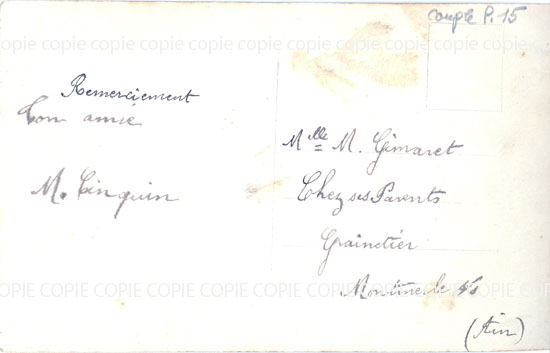 couple P. 15
COPIE COPIE COPIE COPIE COPIE COPIE COPIE COPIE COPIE COPIE
Remerciement
Ton amie
M. Tinquin
Mlle M. Gimaret
Chez ses Parents
Grainetier
COPIE COPIE COPIE COPIE COPIE COPIE COPIE COPIE COPIE COPIE
Montmerle s/s
(Ain)